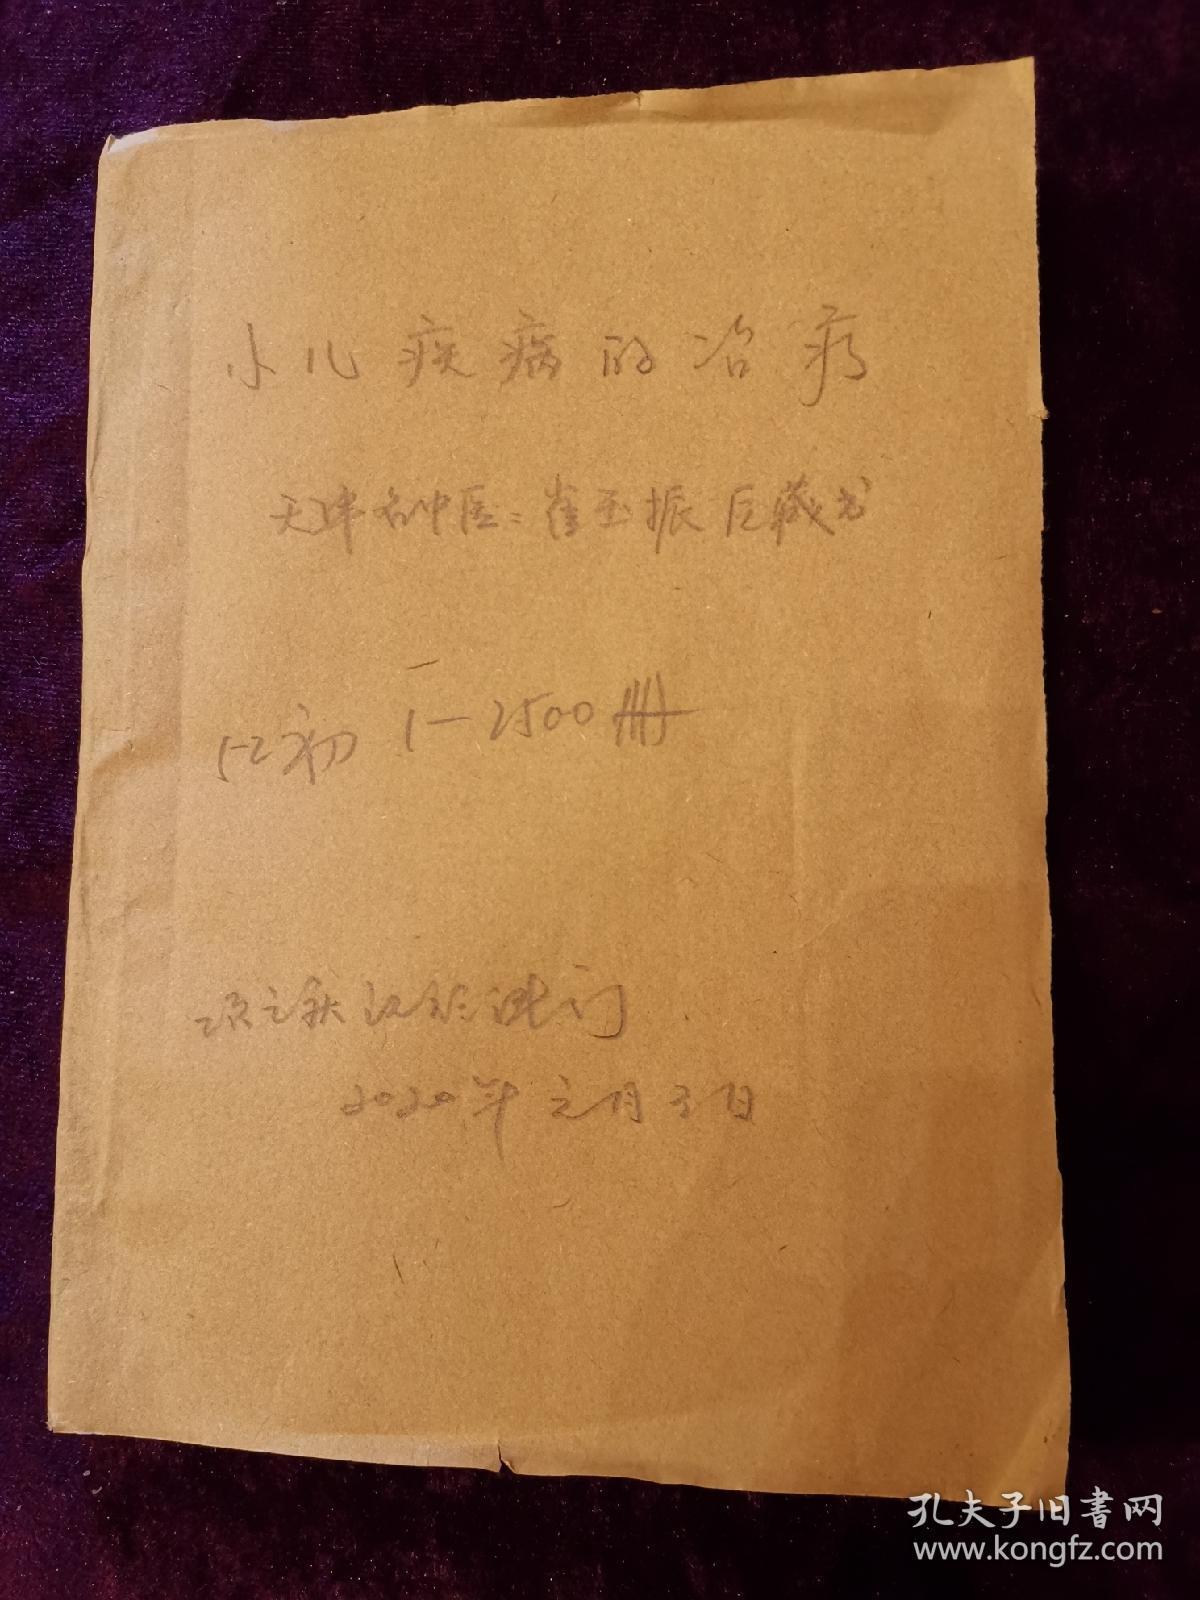 小儿疾病的治疗
天津名中医:崔玉振旧藏书
52初 1-2500册
2020年元月3日
孔夫子旧書网
www.kongfz.com